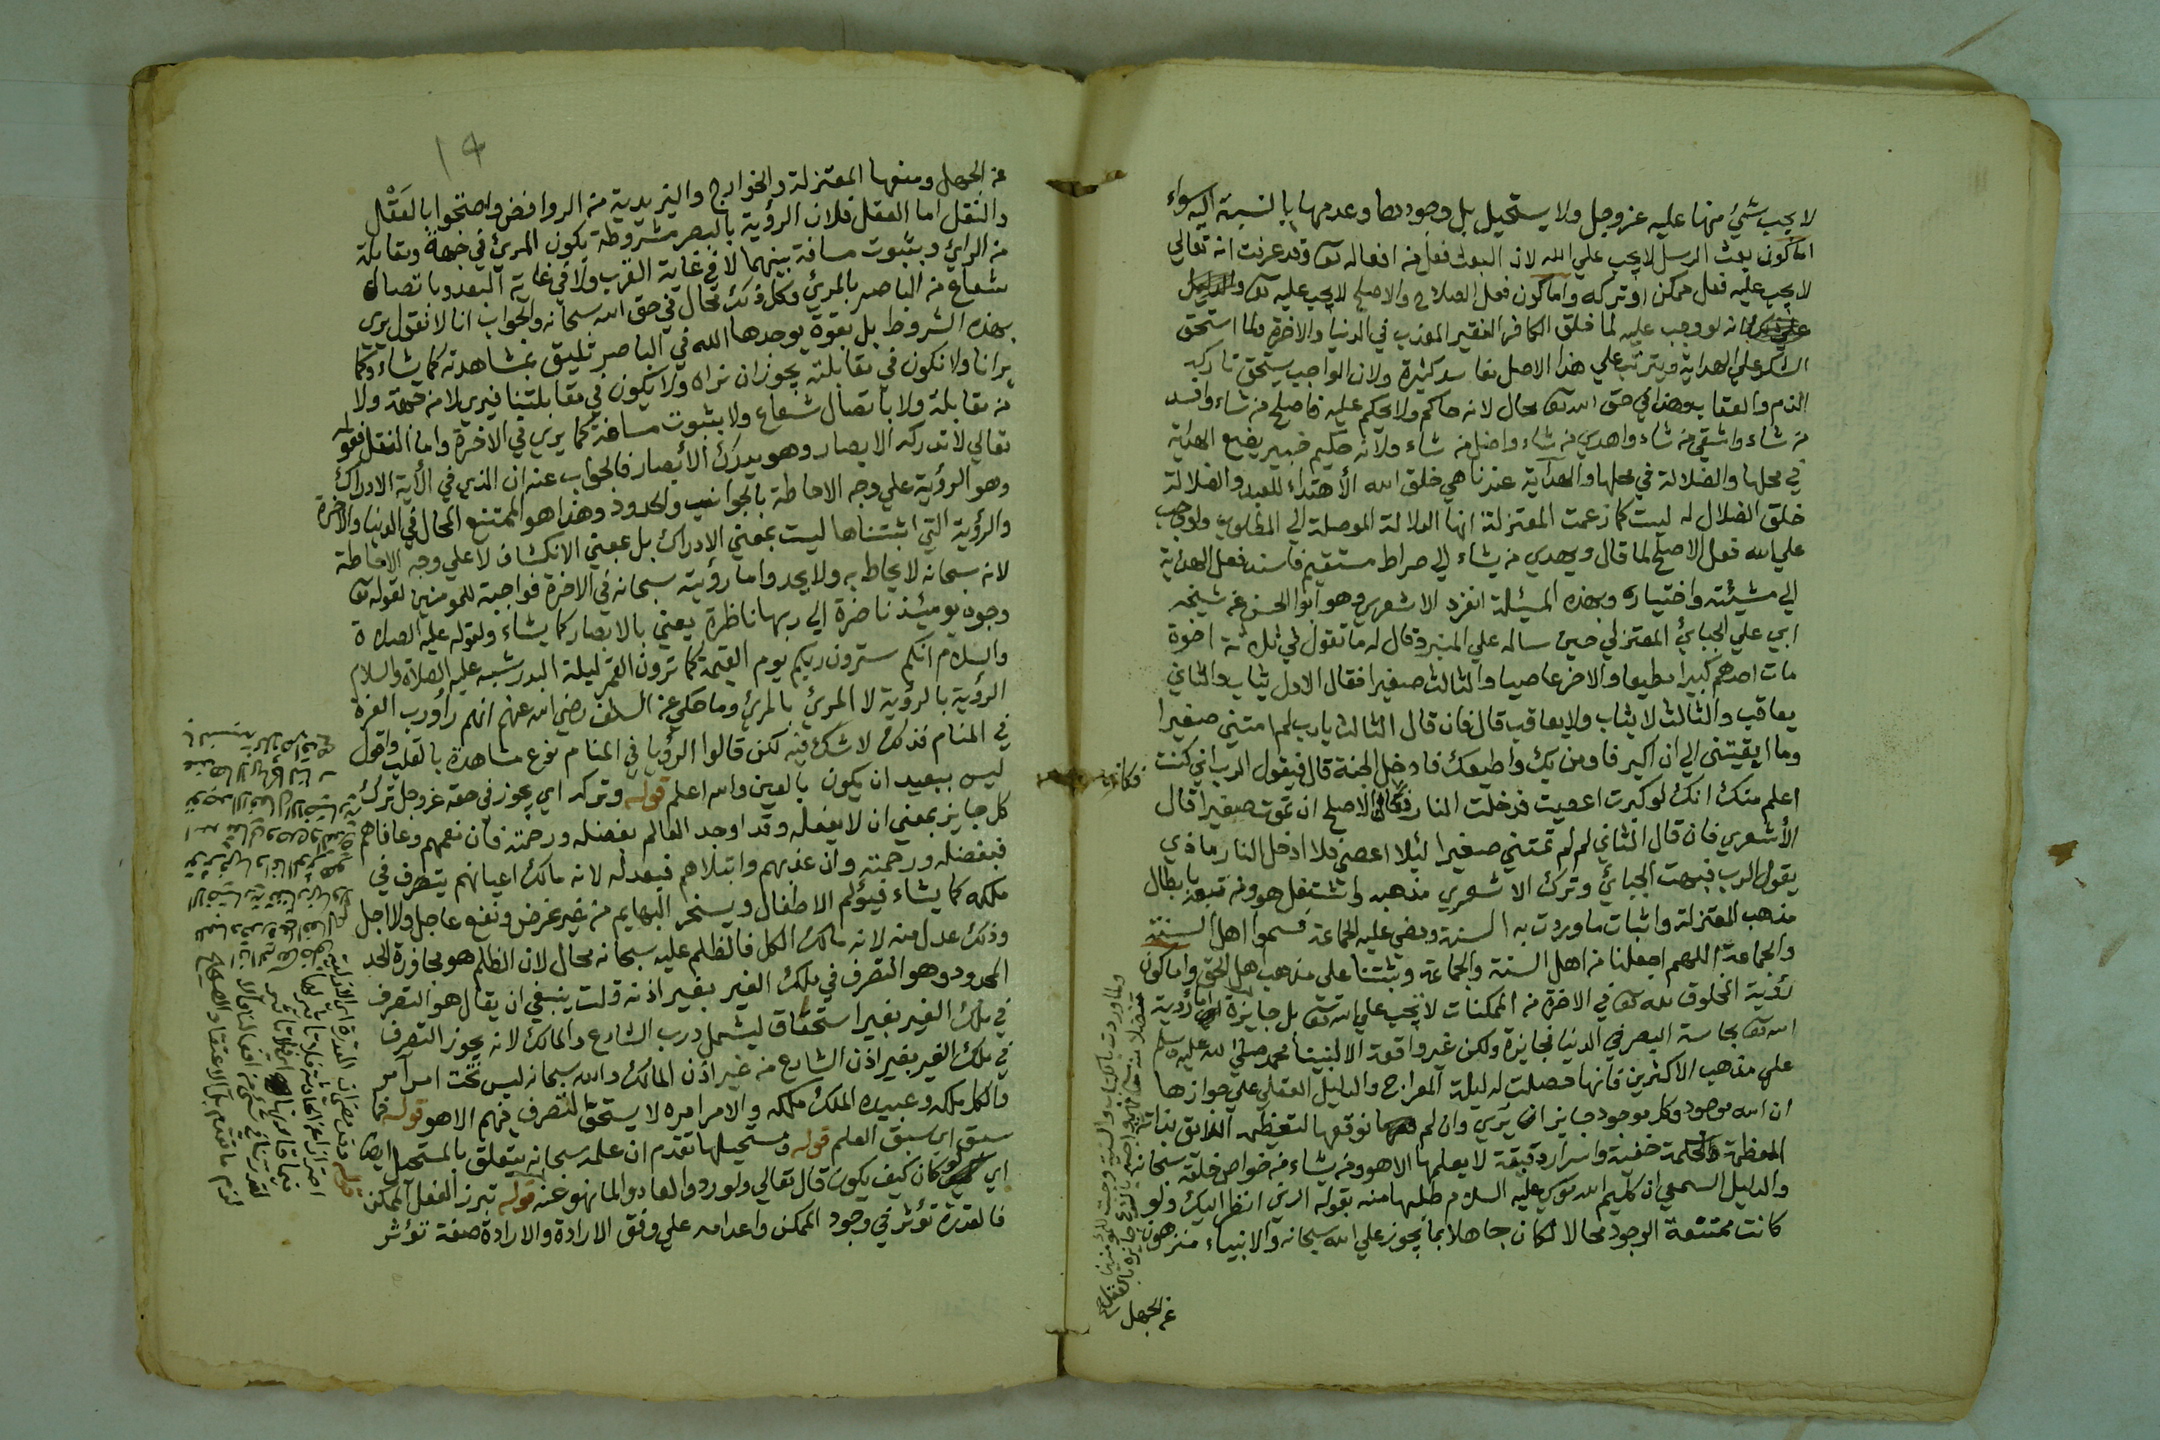 لا يجب شيء منها عليه عز وجل ولا يستحيل بل وجودها وعدمها بالنسبة اليه سواء
اما كون بعث الرسل لا يجب علي الله لان البعث فعل من افعاله تعا وقد عرفت انه تعالي
لا يجب عليه فعل ممكن او تركه واما كون فعل الصلاح والاصلح لا يجب عليه تعا
فانه لو وجب عليه لما خلق الكافر الفقير المعذب في الدنيا والاخرة ولما استحق
الشكر علي الهداية ويترتب علي هذا الاصل مفاسد كثيرة ولان الواجب يستحق تاركه
الذم والعقاب وهذا في حق الله تعا محال لانه حاكم ولا يحكم عليه فاصلح من شاء وافسد
من شاء واشقي من شاء واهدي من شاء واضل من شاء ولانه حكيم خبير يضع الهداية
في محلها والضلالة في محلها والهداية عندنا هي خلق الله الأهتداء للعبد والضلالة
خلق الضلال له ليست كما زعمت المعتزلة انها الدلالة الموصلة الي المطلوب ولو وجب
علي الله فعل الاصلح لما قال ويهدي من يشاء الي صراط مستقيم فاسند فعل الهداية
الي مشيئته واختياره وبهذه المسئلة انفرد الاشعري وهو ابو الحسن عن شيخه
ابي علي الجبائي المعتزلي حين ساله علي المنبر وقال له ما تقول في ثلاثة اخوة
مات احدهم كبيرا مطيعا والاخر عاصيا والثالث صغيرا فقال الاول يثاب والثاني
يعاقب والثالث لا يثاب ولا يعاقب قال فان قال الثالث يارب لم امتني صغيرا
وما ابقيتني الي ان اكبر فاومن بك واطيعك فادخل الجنة قال فيقول الرب اني كنت
اعلم منك انك لو كبرت اعصيت فدخلت النار فكان الاصلح ان تموت صغيرا قال
الأشعري فان قال الثاني لم لم تمتني صغيرا لئلا اعصي فلا ادخل النار ماذي
يقول الرب فبهت الجبائي وترك الاشعري مذهبه واشتغل هو ومن تبعه بابطال
مذهب المعتزلة واثبات ما وردت به السنة ومضي عليه الجماعة فسموا اهل السنة
والجماعة اللهم اجعلنا من اهل السنة والجماعة وثبتنا علي مذهب اهل الحق واما كون
رؤية المخلوق لله تعا في الاخرة من الممكنات لا يجب علي الله تعا بل جايزة اما رؤية
الله تعا بحاسة البصر في الدنيا فجايزة ولكن غير واقعة الا لنبينا محمد صلي الله عليه وسلم
علي مذهب الاكثرين فانها حصلت له ليلة المعراج والدليل العقلي علي جوازها
ان الله موجود وكل موجود جايز ان يري وان لم نوقعها لتعظيمه الفائق بذاته
المعظمة ولحكمة خفية واسرار دقيقة لا يعلمها الا هو ومن يشاء من خواص خلقه سبحانه
والدليل السمعي ان كليم الله موسي عليه السلام طلبها منه بقوله ارني انظر اليك ولو
كانت ممتنعة الوجود محالا لكان جاهلا بما يجوز علي الله سبحانه والانبياء منزهون
عن الجهل
١٤
عن الجهل ومنعها المعتزلة والخوارج والزيدية من الروافض واحتجوا بالعقل
والنقل اما العقل فلان الرؤية بالبصر مشروطة بكون المرئي في جهة ومقابلة
من الرائي وبثبوت مسافة بينهما لا في غاية القرب ولا في غاية البعد وباتصال
شعاع من الباصر بالمرئي وكل ذلك محال في حق الله سبحانه والجواب انا لا نقول يري
بهذه الشروط بل بقوة يوجدها الله في الباصر تليق بمشاهدته كما يشاء وكما
يرانا ولا نكون في مقابلته يجوز ان نراه ولا يكون في مقابلتنا فيري لا من جهة ولا
من مقابلة ولا باتصال شعاع ولا بثبوت مسافة كما يري في الاخرة واما النقل فقوله
تعالي لا تدركه الابصار وهو يدرك الأبصار فالجواب عنه ان الذي في الأية الادراك
وهو الرؤية علي وجه الاحاطة بالجوانب والحدود وهذا هو الممتنع المحال في الدنيا والاخرة
والرؤية التي اثبتناها ليست بمعني الادراك بل بمعني الانكشاف لا علي وجه الاحاطة
لانه سبحانه لا يحاط به ولا يحد واما رؤيته سبحانه في الاخرة فواجبة للمومنين لقوله تعا
وجوه يومئذ ناضرة الي ربها ناظرة يعني بالابصار كما يشاء ولقوله عليه الصلاة
والسلام انكم سترون ربكم يوم القيمة كما ترون القمر ليلة البدر شبه عليه الصلاة والسلام
الرؤية بالرؤية لا المرئي بالمرئي وما حكي عن السلف رضي الله عنهم انهم رأو رب العزة
في المنام فذلك لا شك فيه لكن قالوا الرؤيا في المنام نوع مشاهدة بالقلب واقول
ليس ببعيد ان يكون بالعين والله اعلم قوله وتركه اي يجوز في حقه عز وجل ترك
كل جايز بمعني ان لا يفعله وقد اوجد العالم بفضله ورحمته فان نعمهم وعافاهم
فبفضله ورحمته وان عذبهم وابتلاهم فبعدله لانه مالك اعيانهم يتصرف في
ملكه كما يشاء فيؤلم الاطفال ويسخر البهايم من غير غرض ونفع عاجل ولا اجل
وذلك عدل منه لانه مالك الكل فالظلم عليه سبحانه محال لان الظلم هو مجاوزة الحد
المحدود وهو التصرف في ملك الغير بغير اذنه قلت ينبغي ان يقال هو التصرف
في ملك الغير بغير استحقاق ليشمل درب الشارع والمالك لانه يجوز التصرف
في ملك الغير بغير اذن الشارع من غير اذن المالك والله سبحانه ليس تحت امر آمر
والكل ملكه وعبيده الملك ملكه والامر امره لا يستحق التصرف فيهم الا هو قوله فما
سبق اي سبق العلم قوله ومستحيلها تقدم ان علمه سبحانه يتعلق بالمستحيل ايضا
اي لو كان كيف يكون قال تعالي ولو ردوا لعادوا لما نهو عنه قوله تبرز الفعل الممكن
فالقدرة تؤثر في وجود الممكن واعدامه علي وفق الارادة والارادة صفة تؤثر